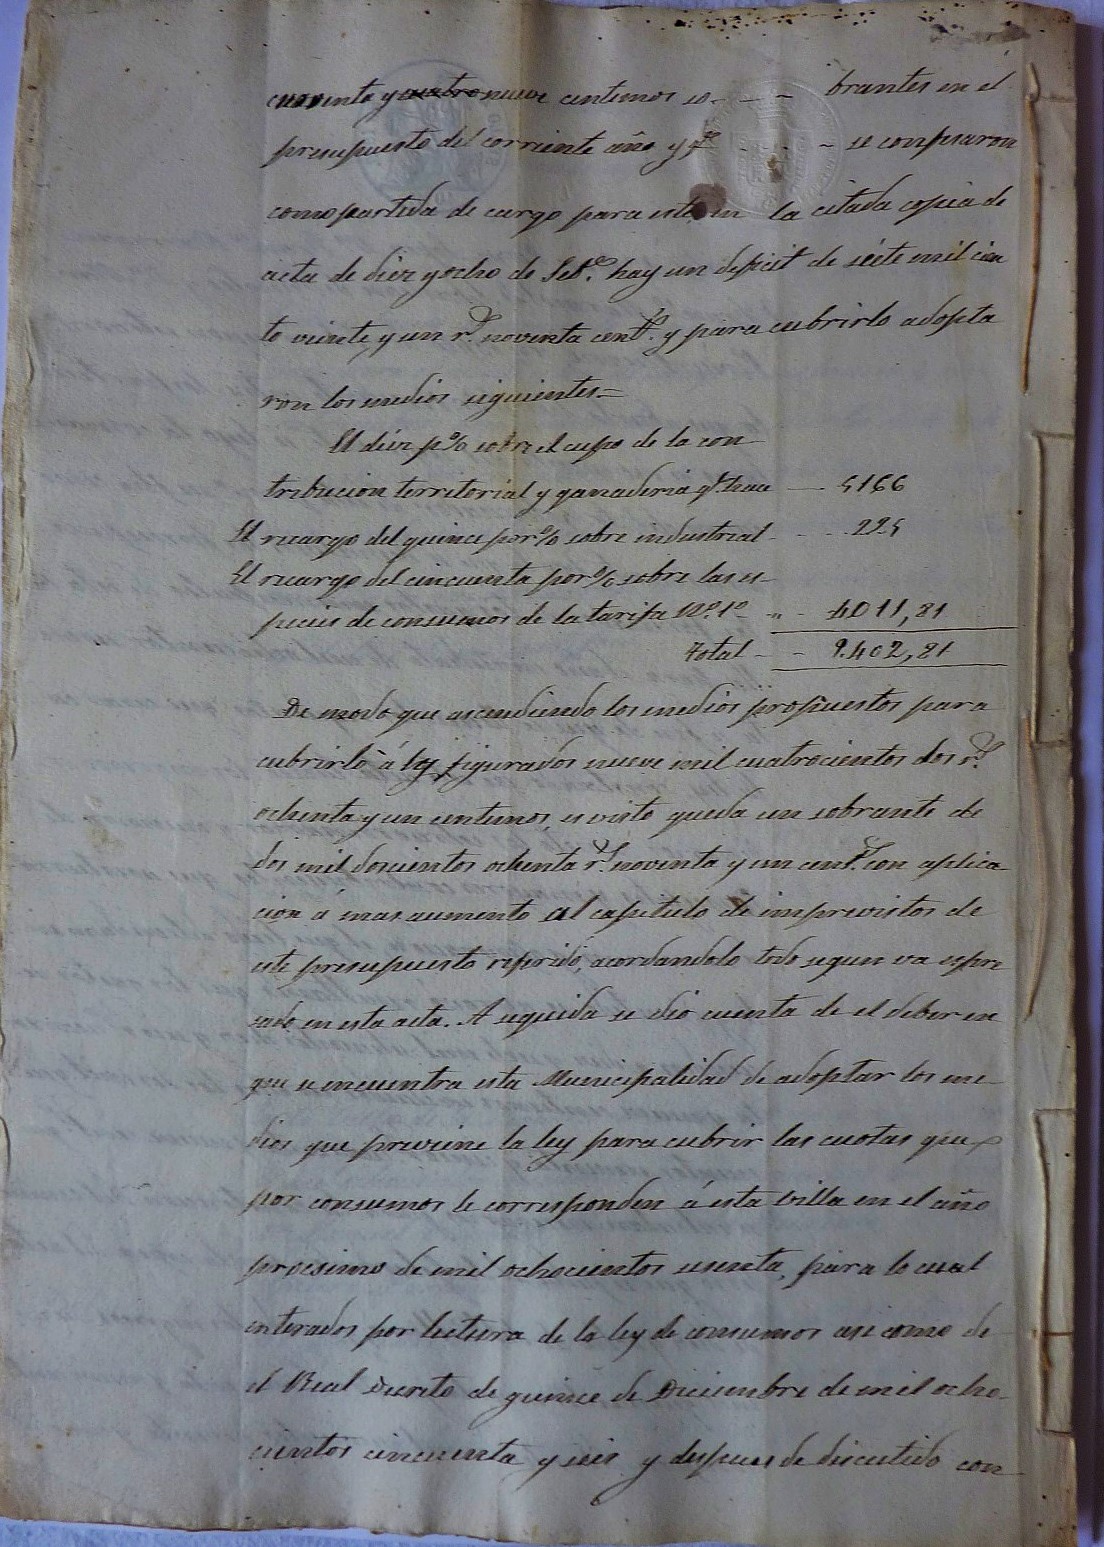 cuarenta y cuatro nueve centimos so- - - brantes en el
presupuesto del corriente año y qe - - - se compraron
como partida de cargo para este, en la citada copia de
acta de diez y ocho de Sebe. hay un deficit de siete mil cien
to veinte y un rs. noventa cents. y para cubrirlo adopta
ron los medios siguientes=
El diez p% sobre el cupo de la con
tribucion territorial y ganaderia qe. hace — 5166
El recargo del quince por % sobre industrial - - - 225
El recargo del cincuenta por % sobre las es-
pecies de consumos de la tarifa Nº. 1º - - 4011,81
Total - - 9.402,81
De modo que ascendiendo los medios propuestos para
cubrirlo á los figurados nueve mil cuatrocientos dos rs.
ochenta y un centimos, es visto queda un sobrante de
dos mil doscientos ochenta rs. noventa y un cents. con aplica
cion á mas aumento al capitulo de imprevistos de
este presupuesto referido, acordandolo todo segun va espre
sado en esta acta. A seguida se dio cuenta de el deber en
que se encuentra esta Municipalidad de adoptar los me-
dios que previene la ley para cubrir las cuotas que
por consumos le corresponden á esta villa en el año
procsimo de mil ochocientos sesenta, para lo cual
enterados por lectura de la ley de consumos asi como de
el Real Decreto de quince de Diciembre de mil ocho-
cientos cincuenta y seis y despues de discutido con